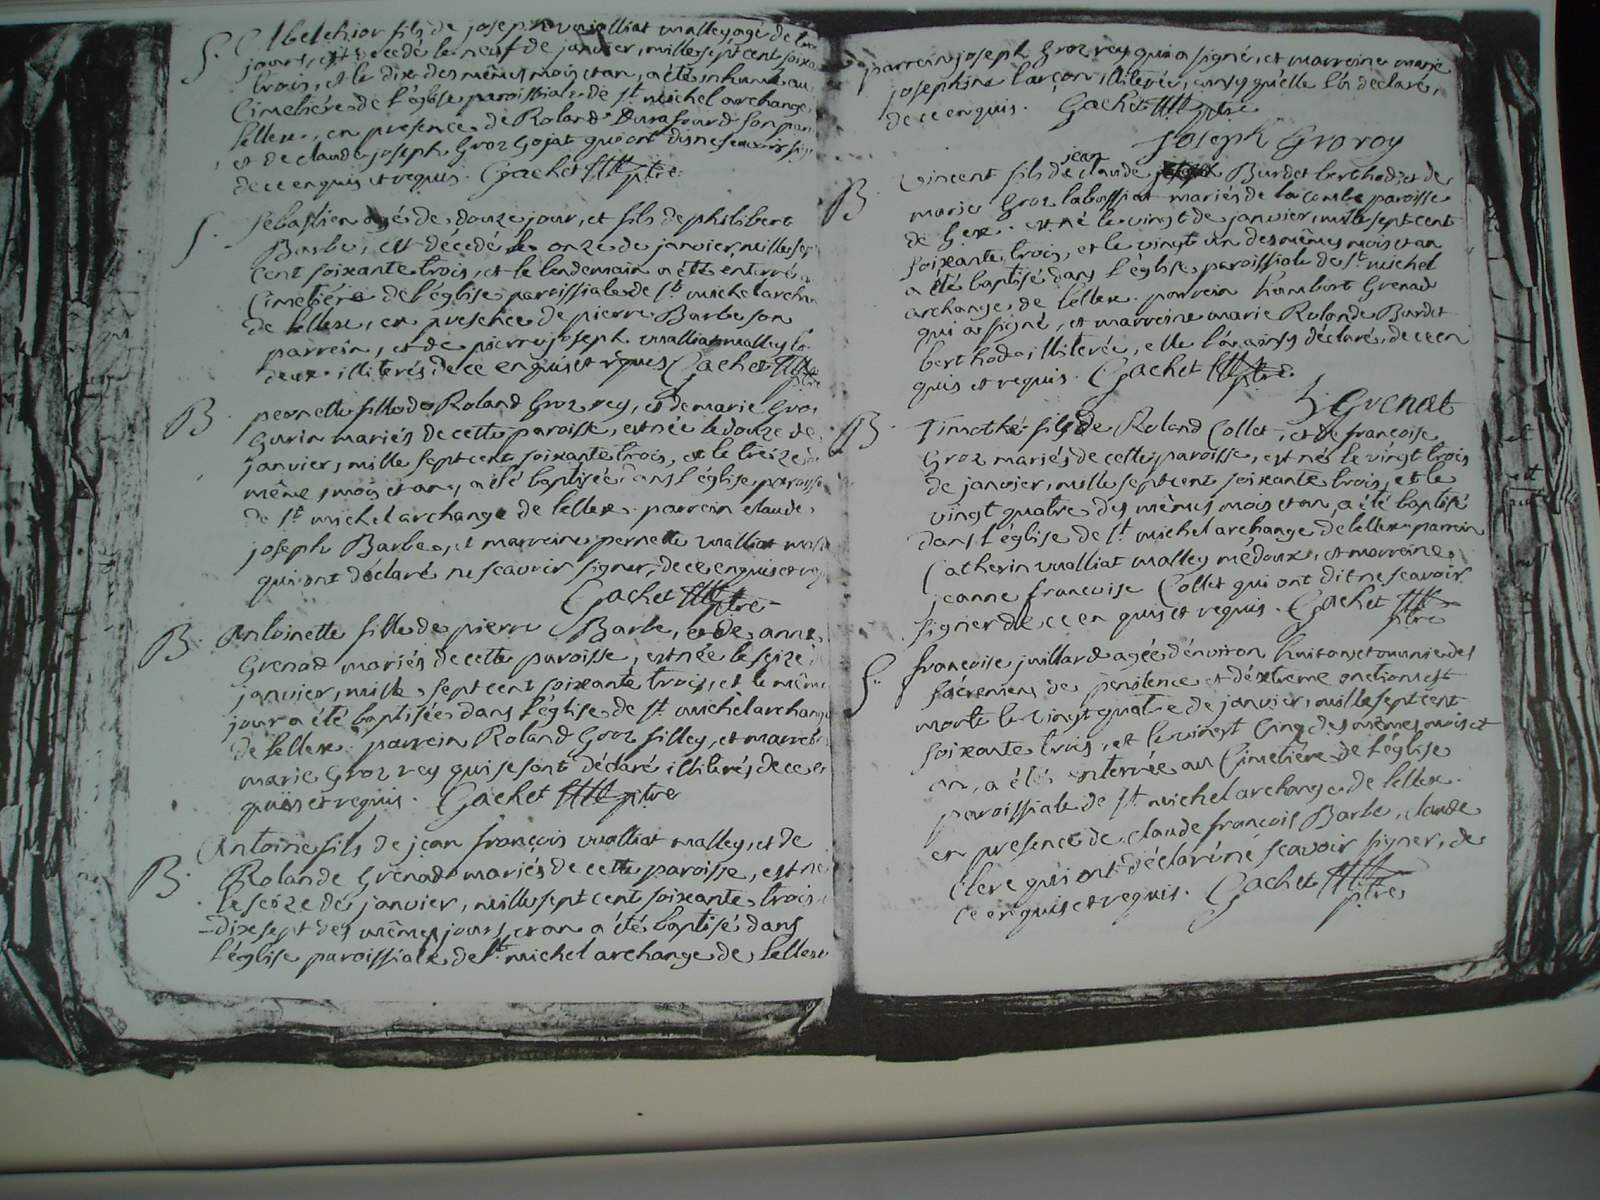 S. Melchior fils de joseph vualliat malley agé de
jours, est decedé le neuf de janvier, mille sept cent soixa
trois, et le dix des mêmes mois et an, a été inhumé au
Cimetière de l'église paroissiale de st. michel archange
Lellex, en presence de Roland Durafourd son parr
et de claude joseph Groz Gojat qui ont dis ne scavoir sig
de ce enquis et requis. Gachet ptre
S. Sebastien agé de douze jour, et fils de philibert
Barbe, est décedé le onze de janvier, mille sep
cent soixante trois, et le lendemain a été enterré a
Cimetière de l'église paroissiale de st. michel archan
de Lellex, en presence de pierre Barbe son
parrein, et de pierre joseph vualliat malley
deux illiterés de ce enquis et requis Gachet
ptre
B. pernette fille de Roland Groz rey, et de marie Groz
Gurin mariés de cette paroisse, est née le douze de
janvier, mille sept cent soixante trois, et le treize
même mois et an, a été baptisée dans l'église paroiss
de st. michel archange de Lellex. parrein claude
joseph Barbe, et marreine pernette vualliat
qui ont déclaré ne scavoir signer, de ce enquis et req
Gachet ptre
B. Antoinette fille de pierre Barbe, et de anne
Grenad mariés de cette paroisse, est née le seize
janvier, mille sept cent soixante trois, et le même
jour a été baptisée dans l'église de st. michel archange
de Lellex. parrein Roland Groz filley, et marrei
marie Groz rey qui se sont déclaré illiterés de ce en
quis et requis. Gachet ptre
B. Antoine fils de jean françois vualliat malley, et de
Rolande Grenad mariés de cette paroisse, est né
le seize de janvier, mille sept cent soixante trois
dix sept des mêmes jours et an a été baptisé dans
l'église paroissiale de st. michel archange de Lellex
parrein joseph Groz rey qui a signé, et marreine marie
josephine Larçon, illiterée, ainsy qu'elle l'a déclaré,
de ce enquis. Gachet ptre
Joseph Groroy
B. Vincent fils de jean claude Burdet berthod, et de
marie Groz labossiat mariés de la combe paroisse
de Gex. est né le vingt de janvier, mille sept cent
soixante trois, et le vingt un des mêmes mois et an
a été baptisé dans l'église paroissiale de st. michel
archange de Lellex. parrein humbert Grenad
qui a signé, et marreine marie Rolande Burdet
berthod illiterée, elle l'a ainsy déclaré, de ce en
quis et requis. Gachet ptre
h Grenat
B. Timothé fils de Roland Collet, et de françoise
Groz mariés de cette paroisse, est né le vingt trois
de janvier, mille sept cent soixante trois, et le
vingt quatre des mêmes mois et an, a été baptisé
dans l'église de st. michel archange de Lellex. parrein
Catherin vualliat malley médoux, et marreine
jeanne francoise Collet qui ont dit ne scavoir
signer de ce enquis et requis. Gachet
ptre
S. francoise juillard agée d'environ huit ans et munie des
sacremens de penitence et d'extreme onction est
morte le vingt quatre de janvier, mille sept cent
soixante trois, et le vingt cinq des mêmes mois et
an, a été enterrée au Cimetière de l'église
paroissiale de st. michel archange de Lellex.
en presence de claude francois Barbe, claude
Clerc qui ont déclaré ne scavoir signer, de
ce enquis et requis. Gachet
ptre